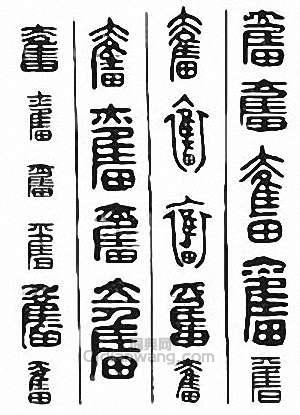 奮奮奮奮奮
奮奮奮奮奮
奮奮奮奮
奮奮奮奮奮奮
词典网
Cidianwang.com